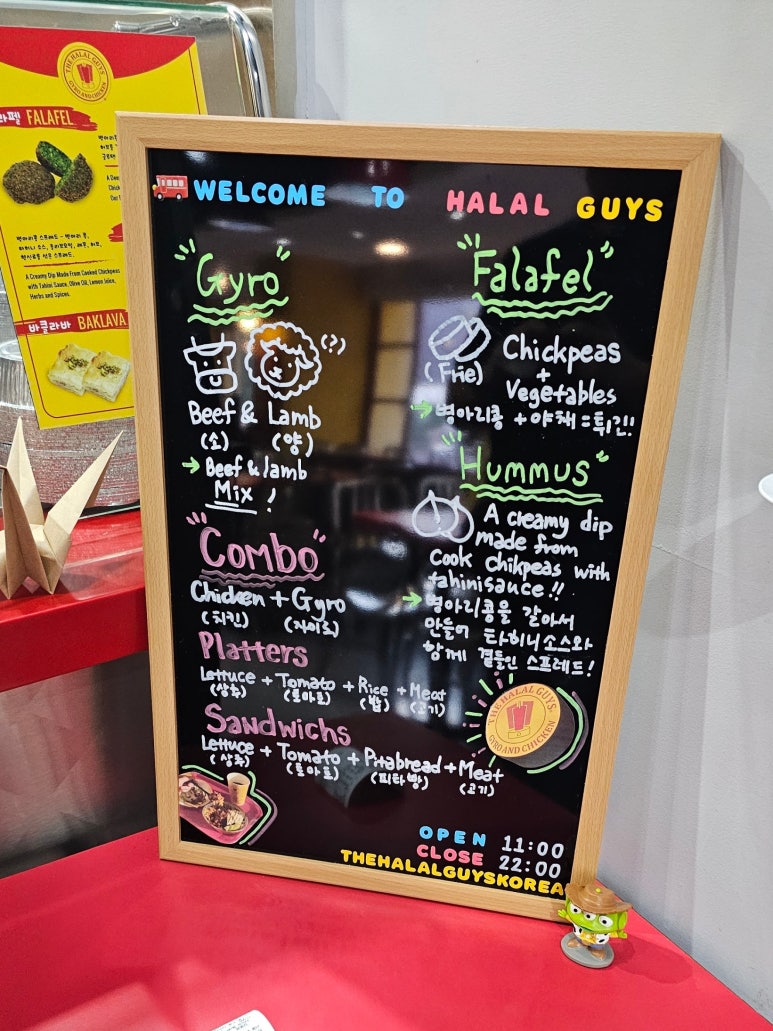 THE HALAL GUYS
GYRO AND CHICKEN
라펠 FALAFEL
A Creamy Dip Made From Cooked Chickpeas
with Tahini Sauce, Olive Oil, Lemon Juice,
Herbs and Spices.
바클라바 BAKLAVA
WELCOME TO HALAL GUYS
"Gyro"
(??)
Beef & Lamb
(소) (양)
→ Beef & lamb
Mix !
"Combo"
Chicken + Gyro
(치킨) (자이로)
Platters
Lettuce + Tomato + Rice + Meat
(상추) (토마토) (밥) (고기)
Sandwichs
Lettuce + Tomato + Pitabread + Meat
(상추) (토마토) (피타빵) (고기)
"Falafel"
(Frie)
Chickpeas
+
Vegetables
→ 병아리콩 + 야채 = 튀긴!!
"Hummus"
A creamy dip
made from
Cook chikpeas with
tahinisauce!!
→ 병아리콩을 갈아서
만들어 타히니소스와
함께 곁들인 스프레드!
THE HALAL GUYS
GYRO AND CHICKEN
OPEN 11:00
CLOSE 22:00
THEHALALGUYSKOREA